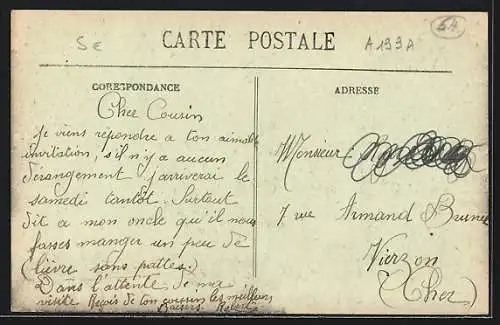 5€
CARTE POSTALE
A199A
54
CORESPONDANCE
ADRESSE
Cher Cousin
Je viens rependre a ton aimable
invitation, s'il n'y a aucun
dérangement j'arriverai le
samedi tantôt. Surtout
dit a mon oncle qu'il nous
fasses manger un peu de
(lièvre sans pattes.)
Dans l'attente de ma
visite Reçois de ton cousin les meilleurs
Baisers
Monsieur
7 rue Armand Brunet
Vierzon
(Cher)